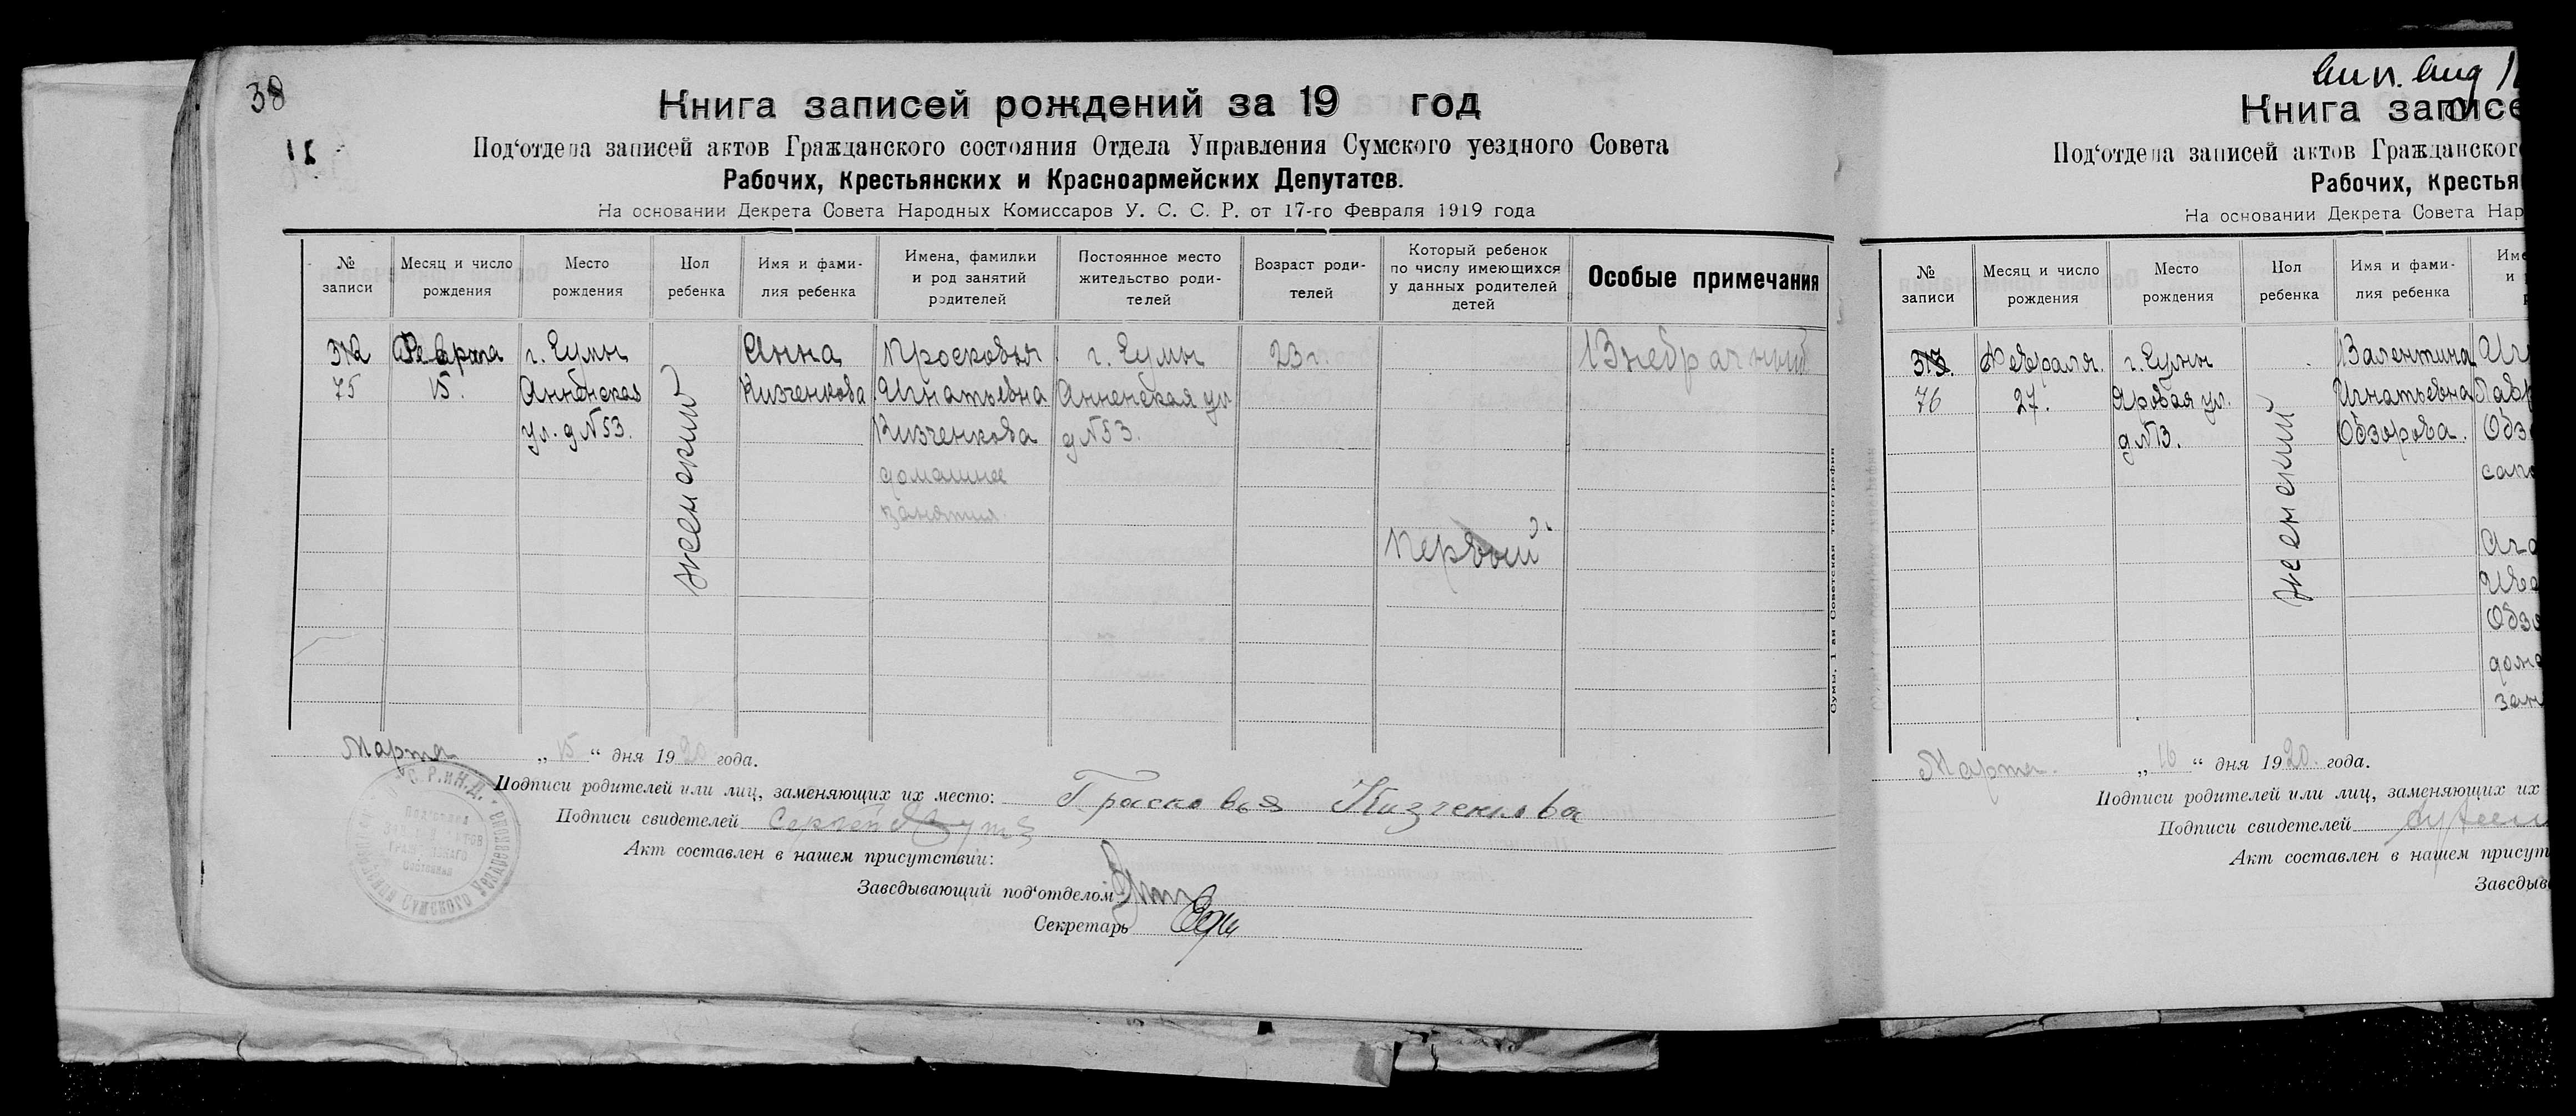 38
Книга записей рождений за 19 год
Под‘отдела записей актов Гражданского состояния Отдела Управления Сумского уездного Совета
Рабочих, Крестьянских и Красноармейских Депутатов.
На основании Декрета Совета Народных Комиссаров У. С. С. Р. от 17-го Февраля 1919 года
№ записи
Месяц и число рождения
Место рождения
Пол ребенка
Имя и фами-
лия ребенка
Имена, фамилии
и род занятий
родителей
Постоянное место
жительство роди-
телей
Возраст роди-
телей
Который ребенок
по числу имеющихся
у данных родителей
детей
Особые примечания
75
15.
г. Сумы
Анненская
ул. д №53.
женский
Анна
Кизченкова
Просковья
Игнатьевна
Кизченкова
домашнее
занятия
г. Сумы
Анненская ул
д №53.
23 г.
Первый
Внебрачный
Сумы, 1-ая Советская типография
Марта „15“ дня 1920 года.
Подписи родителей или лиц, заменяющих их место: Прасковья Кизченкова
Подписи свидетелей Сергей
Акт составлен в нашем присутствии:
Заведывающий под‘отделом
Секретарь
Книга записе
Под‘отдела записей актов Гражданског
Рабочих, Крестья
На основании Декрета Совета Нар
№ записи
Месяц и число рождения
Место рождения
Пол ребенка
Имя и фами-
лия ребенка
76
Февраля
27.
г. Сумы
Яровая ул.
д №13.
женский
Валентина
Игнатьевна
Обзорова.
Марта „16“ дня 1920. года.
Подписи родителей или лиц, заменяющих их
Подписи свидетелей
Акт составлен в нашем присут
Заведыв